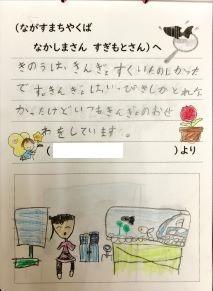 (ながすまちやくば
なかしまさん すぎもとさん)へ
きのうは、きんぎょすくいたのしかった
です。きんぎょは、いっぴきしかとれな
かったけどいつもきんぎょのおせ
わをしています。
(
)より